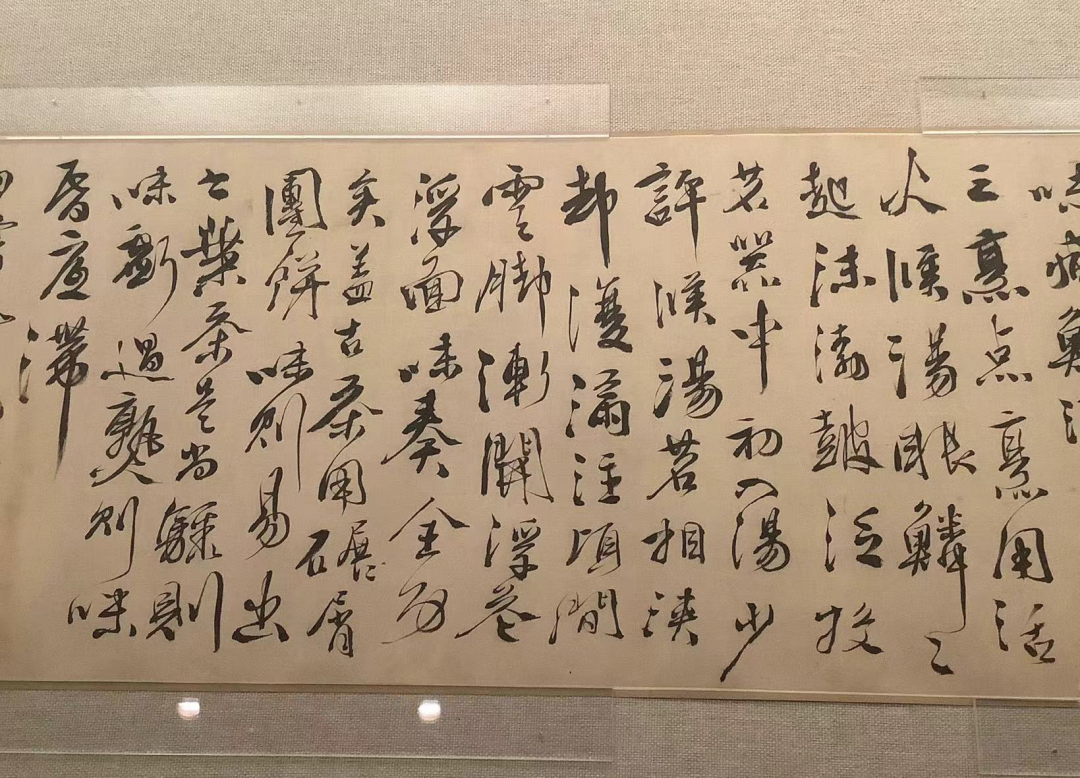 三烹点烹用活
火候湯眼鱗〻
起沫浡鼓泛投
茗器中初入湯少
許候湯茗相浹
却復滿注頃間
雲脚漸開浮花
浮面味奏全功
矣盖古茶用碾屑
團餅味則易出
今葉茶是尚驟則
味虧過熟則味
昏底滯